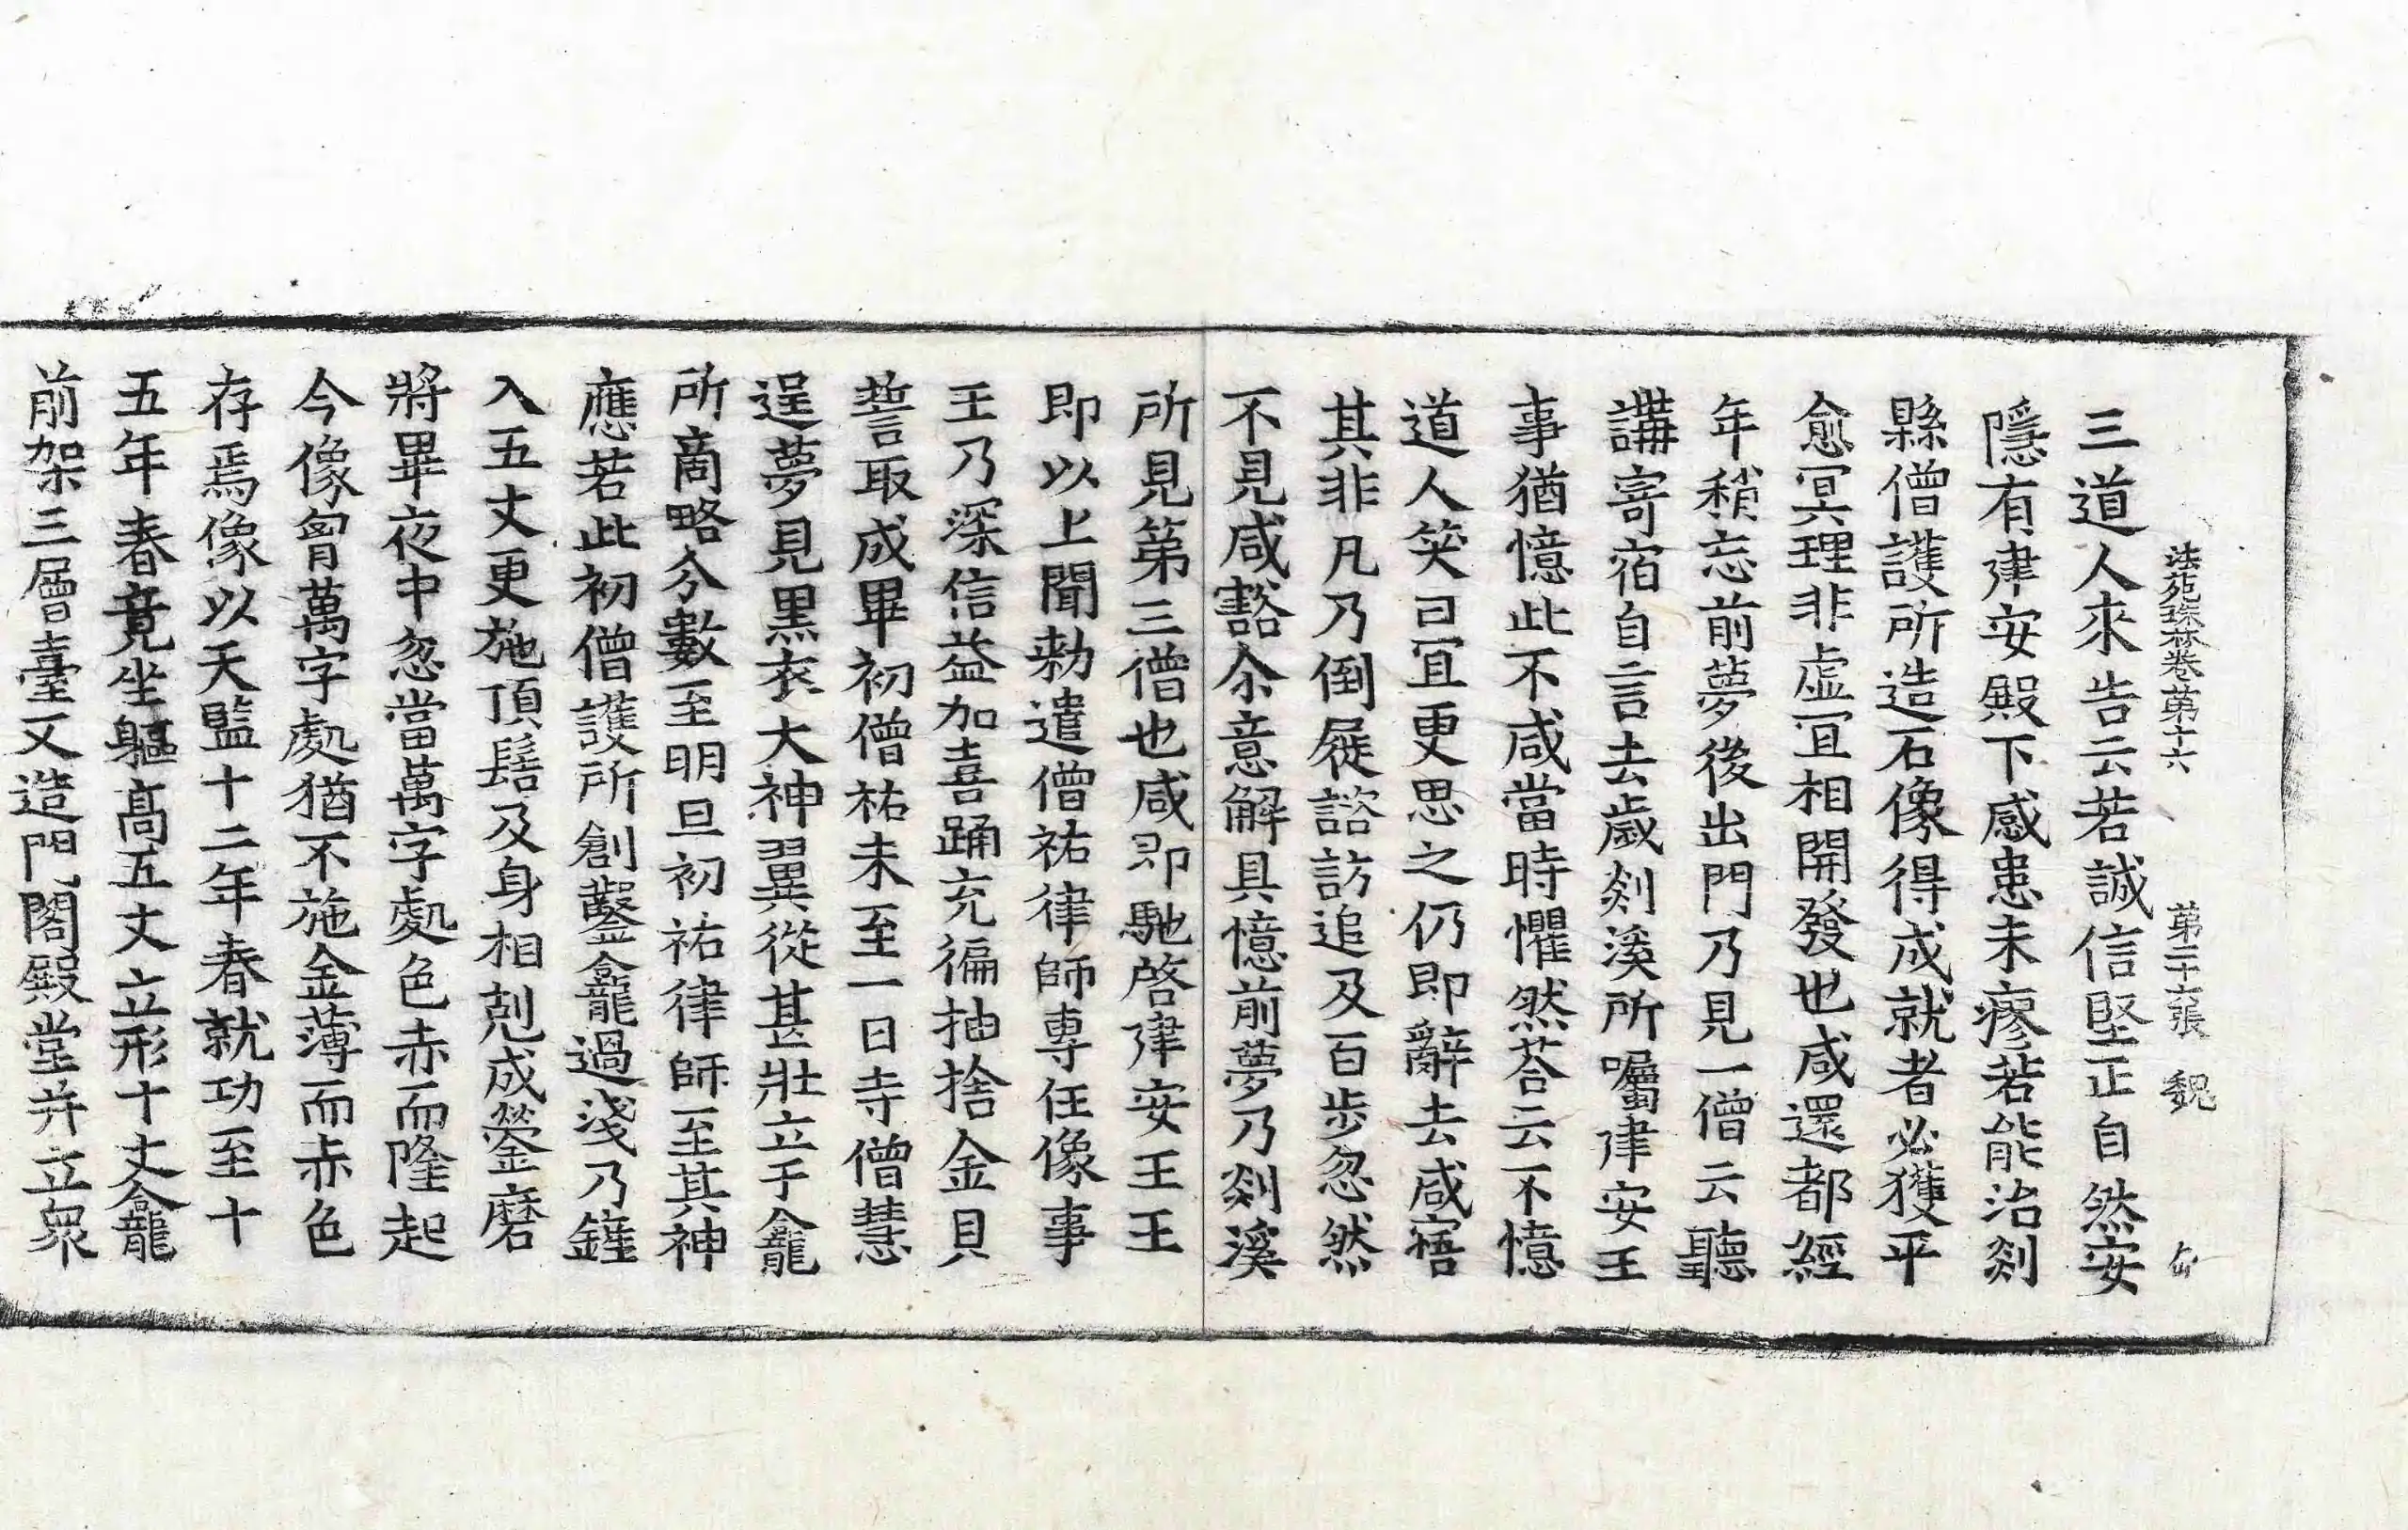 法苑珠林卷第十六 第二十六張 魏
三道人來告云若誠信堅正自然安
隱有建安殿下感患未瘳若能治剡
縣僧護所造石像得成就者必獲平
愈冥理非虛冝相開發也咸還都經
年稍忘前夢後出門乃見一僧云聽
講寄宿自言去歲剡溪所囑建安王
事猶憶此不咸當時懼然荅云不憶
道人笑曰冝更思之仍即辭去咸寤
其非凡乃倒屣諮訪追及百步忽然
不見咸豁尒意解具憶前夢乃剡溪
所見第三僧也咸即馳啓建安王王
即以上聞勑遣僧祐律師專任像事
王乃深信益加喜踊充徧抽捨金貝
誓取成畢初僧祐未至一日寺僧慧
逞夢見黑衣大神翼從甚壯立于龕
所商略分數至明旦初祐律師至其神
應若此初僧護所創鑿龕過淺乃鏟
入五丈更施頂髻及身相剋成瑩磨
將畢夜中忽當萬字處色赤而隆起
今像𦚾萬字處猶不施金薄而赤色
存焉像以天監十二年春就功至十
五年春竟坐軀高五丈立形十丈龕
前架三層臺又造門閣殿堂并立衆